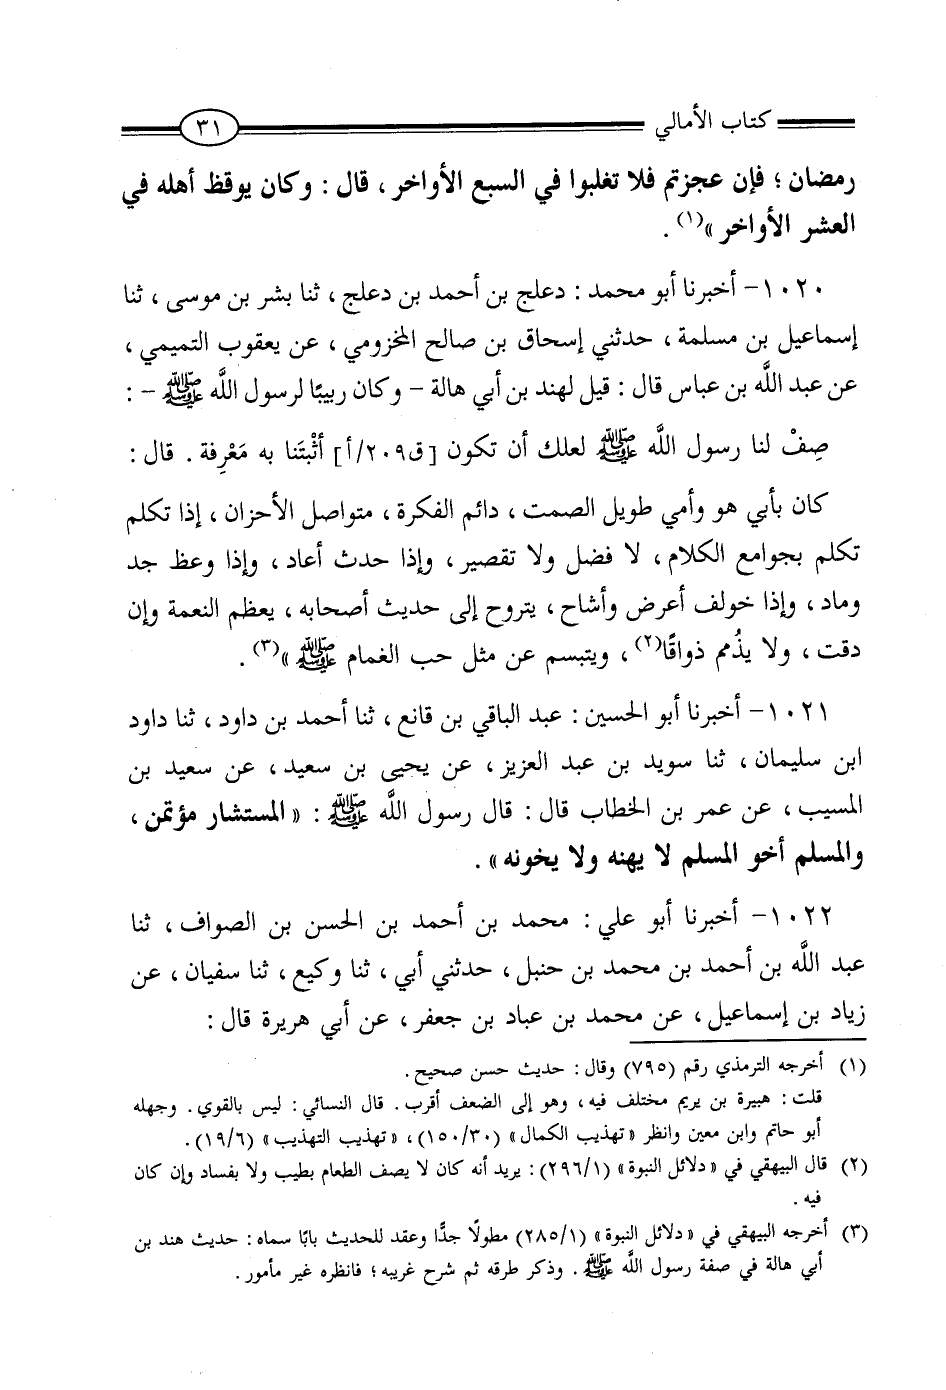 كتاب الأمالي ٣١
رمضان ؛ فإن عجزتم فلا تغلبوا في السبع الأواخر ، قال : وكان يوقظ أهله في
العشر الأواخر »(١) .
١٠٢٠- أخبرنا أبو محمد : دعلج بن أحمد بن دعلج ، ثنا بشر بن موسى ، ثنا
إسماعيل بن مسلمة ، حدثني إسحاق بن صالح المخزومي ، عن يعقوب التميمي ،
عن عبد اللَّه بن عباس قال : قيل لهند بن أبي هالة - وكان ربيبًا لرسول اللَّه ﷺ - :
صِفْ لنا رسول اللَّه ﷺ لعلك أن تكون [ق٢٠٩/أ] أثْبتَنا به مَعْرفة . قال :
كان بأبي هو وأمي طويل الصمت ، دائم الفكرة ، متواصل الأحزان ، إذا تكلم
تكلم بجوامع الكلام ، لا فضل ولا تقصير ، وإذا حدث أعاد ، وإذا وعظ جد
وماد ، وإذا خولف أعرض وأشاح ، يتروح إلى حديث أصحابه ، يعظم النعمة وإن
دقت ، ولا يذُمم ذواقًا(٢) ، ويتبسم عن مثل حب الغمام ﷺ »(٣) .
١٠٢١- أخبرنا أبو الحسين : عبد الباقي بن قانع ، ثنا أحمد بن داود ، ثنا داود
ابن سليمان ، ثنا سويد بن عبد العزيز ، عن يحيى بن سعيد ، عن سعيد بن
المسيب ، عن عمر بن الخطاب قال : قال رسول اللَّه ﷺ : « المستشار مؤتمن ،
والمسلم أخو المسلم لا يهنه ولا يخونه » .
١٠٢٢- أخبرنا أبو علي : محمد بن أحمد بن الحسن بن الصواف ، ثنا
عبد اللَّه بن أحمد بن محمد بن حنبل ، حدثني أبي ، ثنا وكيع ، ثنا سفيان ، عن
زياد بن إسماعيل ، عن محمد بن عباد بن جعفر ، عن أبي هريرة قال :
(١) أخرجه الترمذي رقم (٧٩٥) وقال : حديث حسن صحيح .
قلت : هبيرة بن يريم مختلف فيه ، وهو إلى الضعف أقرب . قال النسائي : ليس بالقوي . وجهله
أبو حاتم وابن معين وانظر « تهذيب الكمال » (٣٠/١٥٠) ، « تهذيب التهذيب » (٦/١٩) .
(٢) قال البيهقي في « دلائل النبوة » (١/٢٩٦) : يريد أنه كان لا يصف الطعام بطيب ولا بفساد وإن كان
فيه .
(٣) أخرجه البيهقي في « دلائل النبوة » (١/٢٨٥) مطولًا جدًّا وعقد للحديث بابًا سماه : حديث هند بن
أبي هالة في صفة رسول اللَّه ﷺ . وذكر طرقه ثم شرح غريبه ؛ فانظره غير مأمور .